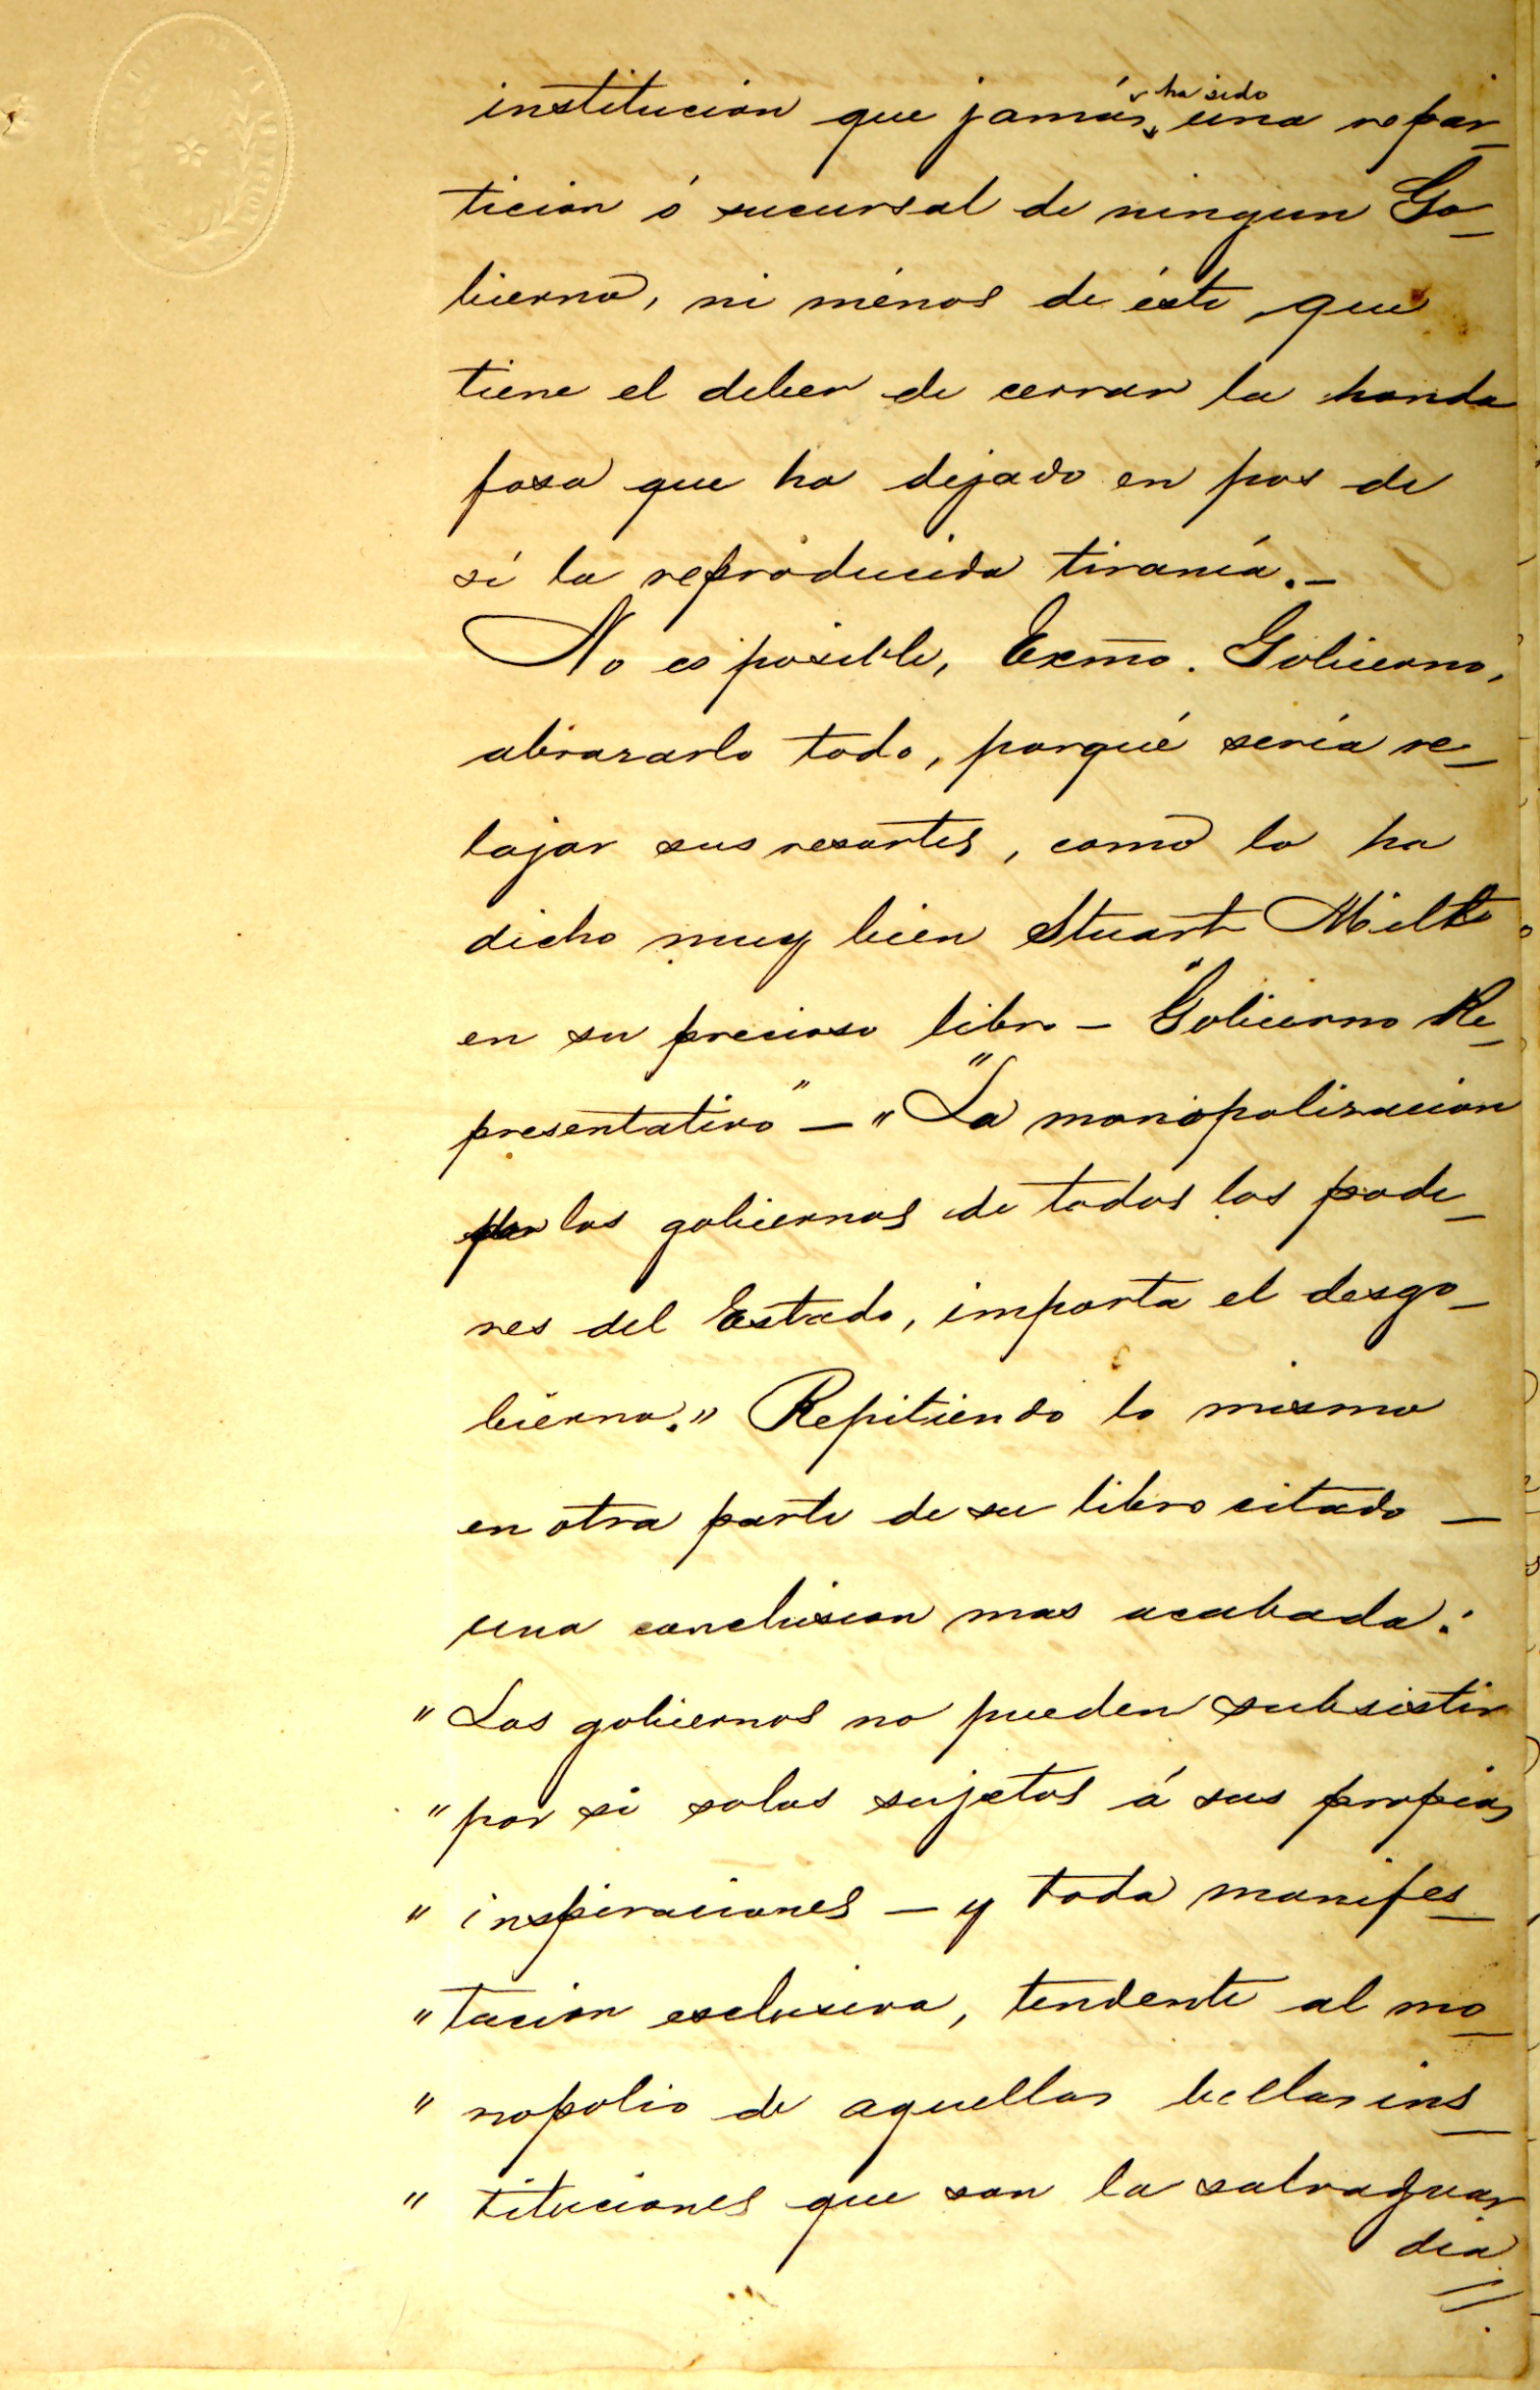 institucion que jamás ha sido una repar_
ticion ó sucursal de ningun Go_
bierno, ni ménos de éste que
tiene el deber de cerrar la honda
fosa que ha dejado en pos de
sí la reproducida tiranía._
No es posible, Exmo. Gobierno,
abrazarlo todo, porqué sería re_
lajar sus resortes, como lo ha
dicho muy bien Stuart Mill
en su precioso libro – "Gobierno Re_
presentativo" – "La monopolizacion
por los gobiernos de todos los pode_
res del Estado, importa el desgo_
bierno." Repitiendo lo mismo
en otra parte de su libro citado –
una conclusion mas acabada:
" Los gobiernos no pueden subsistir
" por si solos sujetos á sus propias
" inspiraciones – y toda manifes_
" tacion esclusiva, tendente al mo_
" nopolio de aquellas bellas ins_
" tituciones que son la salvaguar
dia